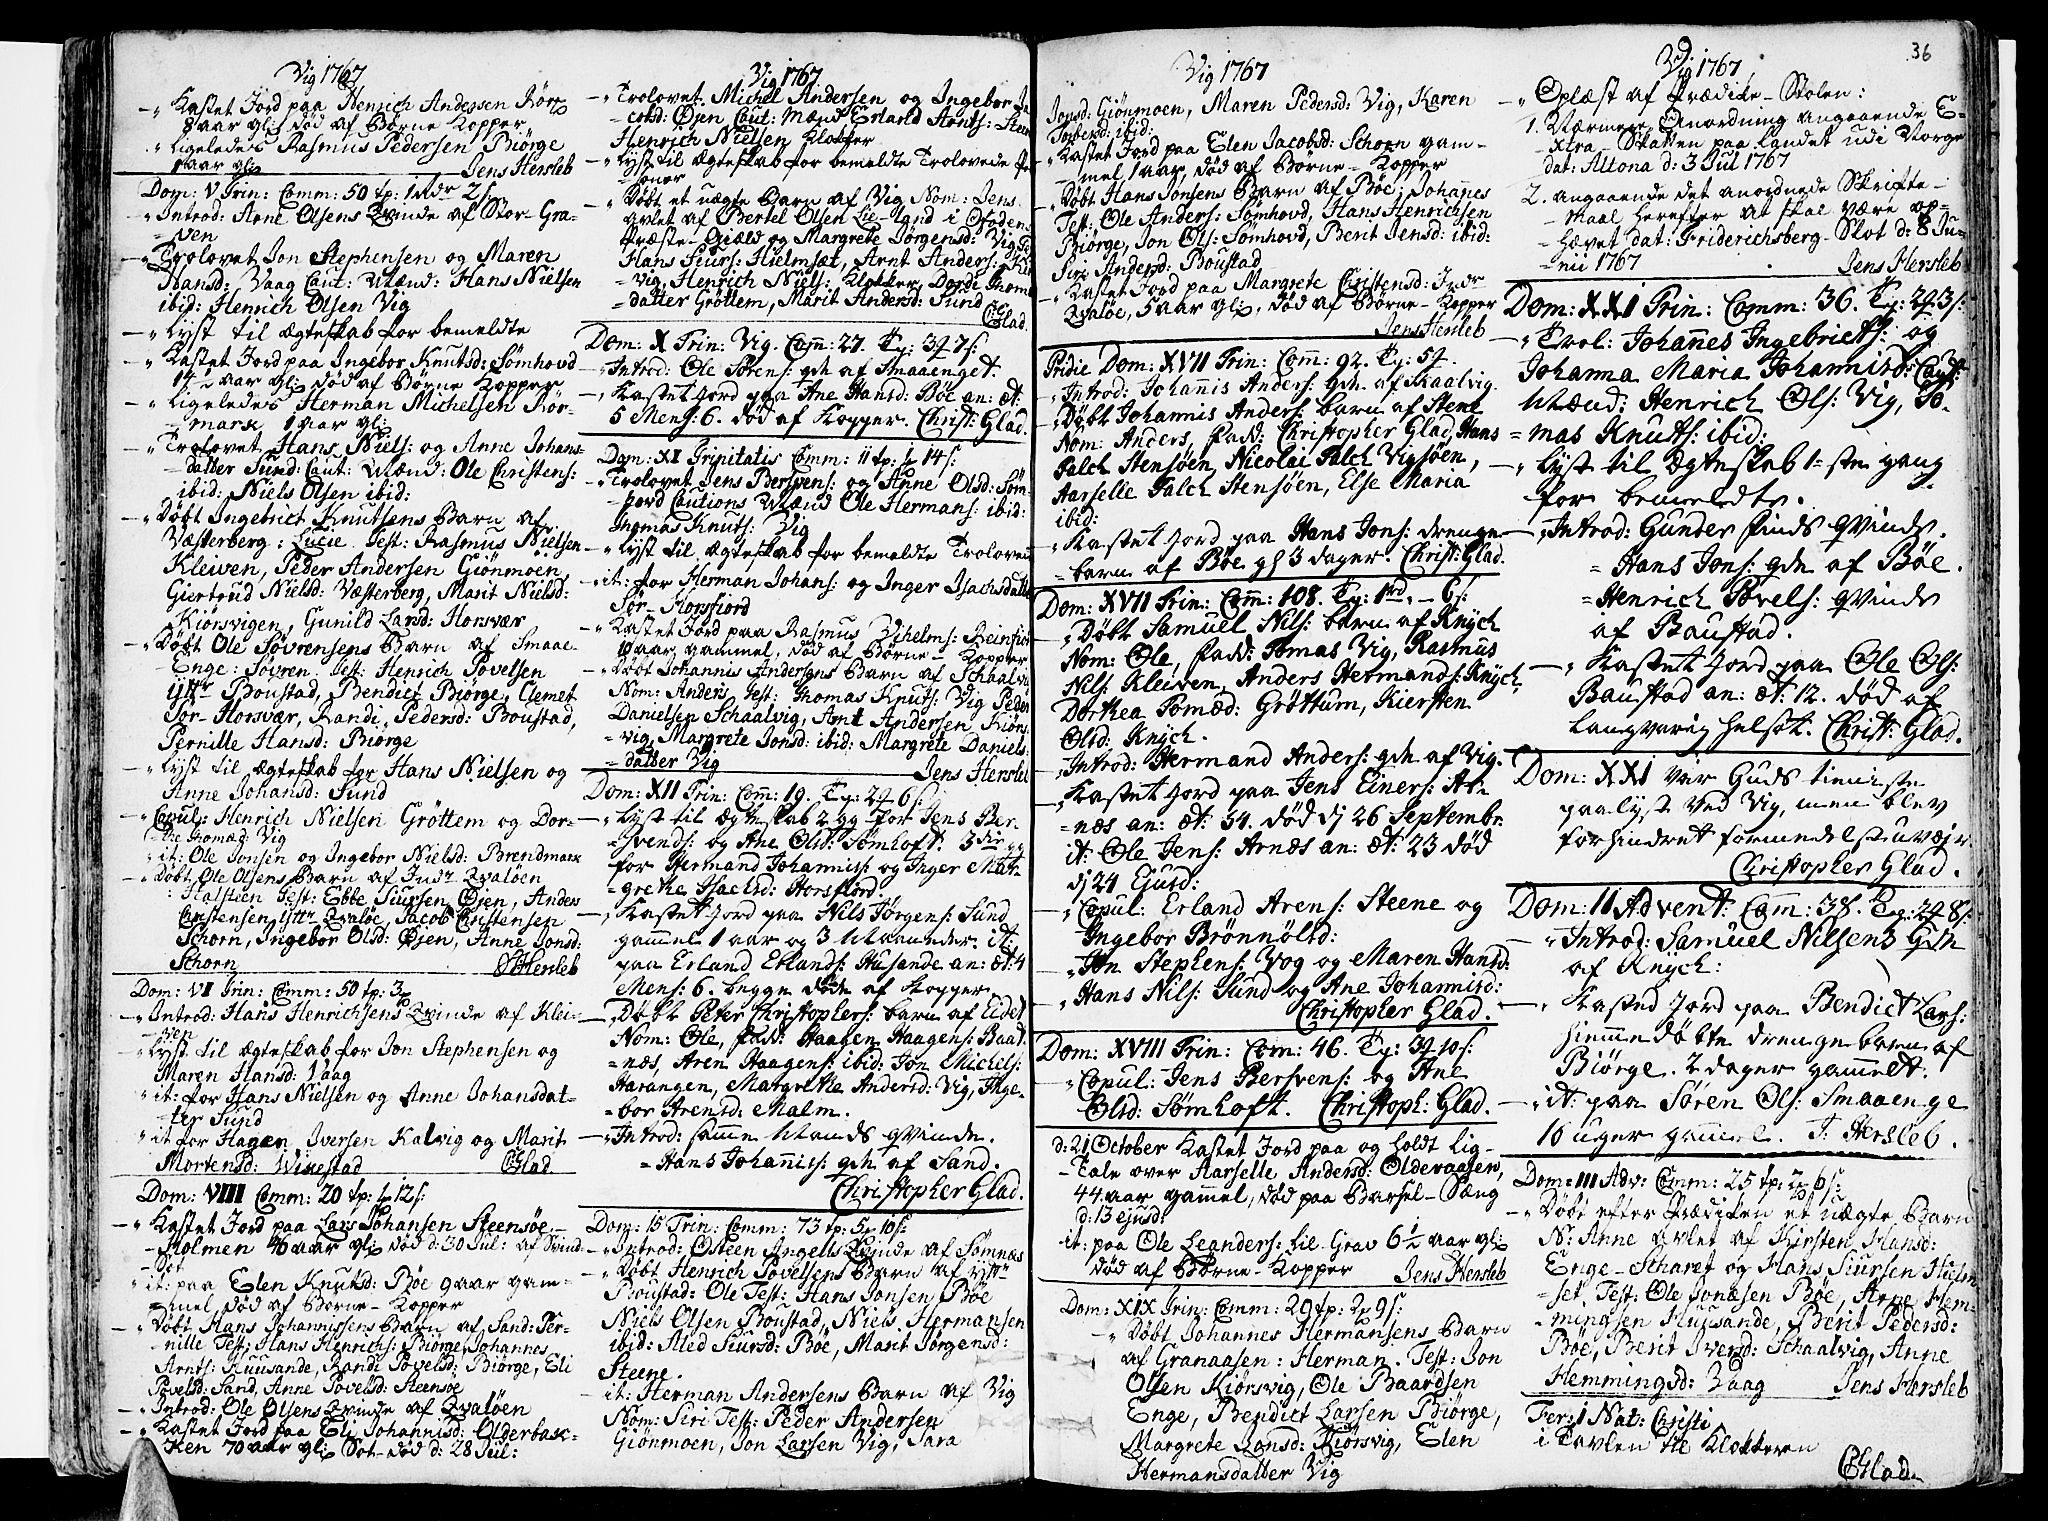 Vig 1767
" Kastet Jord paa Henrich Andersen
8 aar gl: død af Børne Kopper
" Ligeledes Rasmus Pedersen Biørge
1 aar gl:
Jens Hersleb
Dom: V Trin: Comm: 50 tp: 1 rdr 2 s
" Introd: Arne Olsens Qvinde af Stor-Gra-
ven
" Trolovet Jon Stephensen og Maren
Hansd: Vaag Caut: Mænd: Hans Nielsen
ibid: Henrich Olsen Vig
" Lyst til ægteskab for bemeldte
" Kastet Jord paa Ingebor Knutsd: Sømhovd
aar gl: død af Børne Kopper
" Ligeledes Herman Michelsen Rør-
mark 1 aar gl:
" Trolovet Hans Niels: og Anne Johans-
datter Sund: Caut: Mænd: Ole Christens:
ibid: Niels Olsen ibid:
" Døbt Ingebrict Knutsens Barn af
Væsterberg: Lucie Test: Rasmus Nielsen
Kleiven, Peder Andersen Giönmoen
Giertrud Nielsd: Væsterberg, Marit Nielsd:
Kiörsvigen, Gunild Larsd: Horsvær
" Døbt Ole Sövrensens Barn af Smaae-
Enge: Sövren Test: Henrich Povelsen
Yttr Boustad, Bendict Biørge, Clemet
Sör-Horsvær, Randi Pedersd: Boustad,
Pernille Hansd: Biørge
" Lyst til ægteskab for Hans Nielsen og
Anne Johansd: Sund
" Copul: Henrich Nielsen Gröttem og Dor-
the Thomæd: Vig
" it: Ole Jonsen og Ingebor Nielsd: Brendmark
" Døbt Ole Olsens Barn af Indr Qvaløen
Halsteen Test: Ebbe Siursen Øjen, Anders
Christensen Yttr Qvaløe, Jacob Christensen
Schorn, Ingebor Olsd: Øjen, Anne Jonsd:
Schorn
JHersleb
Dom: VI Trin: Comm: 50 tp: 3
" Introd: Hans Henrichsens Qvinde af Klei-
ven
" Lyst til ægteskab for Jon Stephensen og
Maren Hansd: Vaag
" it: for Hans Nielsen og Anne Johansdat-
ter Sund
" it for Hagen Iversen Kalvig og Marit
Mortensd: Vixestad
CGlad
Dom: VIII Comm: 20 tp: 12 s:
" Kastet Jord paa Lars Johansen Steensøe-
Holmen 46 aar gl: død d: 30 Jul: af Svind-
Sot
" it: paa Elen Knutsd: Bøe 9 aar gam-
mel død af Børne-Kopper
" Døbt Hans Johannissens Barn af Sand: Per-
nille Test: Hans Henrichs: Biørge Johannes
Arnts: Huusande, Randi Povelsd: Biørge, Eli
Povelsd: Sand, Anne Povelsd: Steensøe
" Introd: Ole Olsens Qvinde af Qvaløen
" Kastet Jord paa Eli Johannisd: Olderbak-
ken 70 aar gl: Sot-død d: 28 Jul:
Vig 1767
" Trolovet Michel Andersen og Ingebor Ja-
cobsd: Øjen Caut: Mænd Erland Arnts:
Henrich Nielsen Klokker
" Lyst til ægteskab for bemeldte Trolovede
" Døbt et uægte Barn af Vig Nom: Jens
avlet af Bertel Olsen
Præste-Gield og Margrete Jørgensd: Vig
Hans Siurs: Hielmset, Arnt Anders:
vig, Henrich Niels: Klokker, Dordi Thom
datter Gröttem, Marit Andersd: Sund
CGlad.
Dom: X Trin: Vig. Com: 27. Tp: 7 s:
" Introd: Ole Sørens: qde af Smaaenget.
" Kastet Jord paa Ane Hansd: Böe an: æt:
5 Mens: 6. død af Kopper. Christ: Glad.
Dom: XI Trinitatis Comm: 11 tp: 14 s:
" Trolovet Jens Bersvens: og Anne Olsd: Søm-
hovd Cautions Mænd Ole Hermans: ibid:
Thomas Knuts: Vig
" Lyst til ægteskab for bemeldte Troloved
" it: for Herman Johans: og Inger Isachsdatter
Sør-Horsfiord
" Kastet Jord paa Rasmus Vilhelms: Reinfior
aar gammel, død af Børne-Kopper
" Døbt Johannis Andersens Barn af Schaalvi
Nom: Anders Test: Thomas Knuts: Vig Peder
Danielsen Schaalvig, Arnt Andersen Kiørs-
vig, Margrete Jonsd: ibid: Margrete Daniels
datter Vig
Jens Hersleb
Dom: XII Trin: Com: 19. Tp: 6 s:
" Lyst til ægteskab 2 gg for Jens Ber-
svends: og Ane Olsd: Sømhoft: 3die gg
for Hermand Johannis: og Inger Mar-
grethe Isachsd: Horsfiord.
" Kastet Jord paa Nils Jørgens: Sund
gammel 1 aar og 3 Maaneder. it:
paa Erland Erlands: Husande an: æt: 4
Mens: 6. begge døde af Kopper.
" Døbt Peter Christophers: barn af Eidet
Nom: Ole, fadd: Haagen Haagens: Baad-
næs, Aren Haagens: ibid: Jon Michels:
Harangen, Margrethe Andersd: Vig, Inge-
bor Arensd: Malm.
" Introd: samme Mands qvinde.
" Hans Johannis: qde af Sand.
Christopher Glad.
Dom: 15 Trin: Comm: 73 tp: 5 10 s:
" Introd: Osteen Angells Qvinde af Sömnæs
" Døbt Henrich Povelsens Barn af Yttr
Boustad: Ole Test: Hans Jonsen Bøe
Niels Olsen Boustad, Niels Hermansen
ibid: Aled Siursd: Bøe, Marit Jørgensd:
Steene.
" it: Herman Andersens Barn af Vig
Nom: Siri Test: Peder Andersen
Giönmoen, Jon Larsen Vig, Sara
Vig 1767
Jonsd: Giönmoen, Maren Pedersd: Vig, Karen
Torbersd: ibid:
" Kastet Jord paa Elen Jacobsd: Schorn gam-
mel 1 aar, død af Børne-Kopper
" Døbt Hans Jonsens Barn af Bøe: Johannes
Test: Ole Anders: Sømhovd, Hans Henrichsen
Biørge, Jon Ols: Sømhovd, Berit Jensd: ibid:
Siri Andersd: Boustad
" Kastet Jord paa Margrete Christensd: Indr
Qvaløe, 5 aar gl:, død af Børne-Kopper
Jens Hersleb
Pridie Dom: XVII Trin: Com: 92. Tp: 5
" Introd: Johannis Anders: qde af Skaalvig.
" Døbt Johannis Anders: barn af Stene
Nom: Anders, fadd: Christopher Glad, Hans
Falch Stensöen, Nicolai Falch Vigsöen,
Aarselle Falch Stensöen, Else Maria
ibid:
" Kastet Jord paa Hans Jons: drenge-
barn af Bøe gl 3 dager. Christ: Glad.
Dom: XVII Trin: Com: 108. Tp: 1 rd. - 6 s:
" Døbt Samuel Nils: barn af Knÿch
Nom: Ole, fadd: Tomas Vig, Rasmus
Nils: Kleiven, Anders Hermands: Knÿch,
Dorthea Tomæd: Gröttum, Kiersten
Olsd: Knÿch.
" Introd: Hermand Anders: qde af Vig.
" Kastet Jord paa Jens Einers: Ar-
næs an: æt: 54. død dj 26 Septembr.
it: Ole Jens: Arnæs an: æt: 23 død
dj 24 Ejusd:
" Copul: Erland Arens: Steene og
Ingebor Brönnölsd:
" Jon Stephens: Vog og Maren Hansd:
" Hans Nils: Sund og Ane Johannisd:
Christopher Glad.
Dom: XVIII Trin: Com: 46. Tp: 3 10 s:
" Copul: Jens Bersvens: og Ane
Olsd: Sømhoft. Christoph: Glad.
d: 21 October Kastet Jord paa og holdt Lig-
Tale over Aarselle Andersd: Olderaasen,
44 aar gammel, død paa Barsel-Sæng
d: 13 ejusd:
it: paa Ole Leanders: Lil-Grav 6½ aar gl:
død af Børne-Kopper Jens Hersleb
Dom: XIX Trin: Comm: 29 tp: 2 9 s:
" Døbt Johannes Hermansens Barn
af Granaasen: Herman. Test: Jon
Olsen Kiörsvig, Ole Baardsen
Enge, Bendict Larsen Biørge,
Margrete Jonsd: Kiörsvig, Elen
Hermansdatter Vig
36
Vig 1767
" Oplæst af Prædike-Stolen:
1. Nærmere Anordning angaaende E-
xtra-Skatten paa Landet udi Norge
dat: Altona d: 3 Jul 1767
2. angaaende det anordnede Skrifte-
maal herefter at skal være op-
hævet dat: Friderichsberg-Slot d: 8 Ju-
nii 1767
Jens Hersleb
Dom: XXI Trin: Comm: 36. Tp: 2 3 s:
" Trol: Johannes Ingebricts: og
Johanna Maria Johannisd: Caut:
Mænd: Henrich Ols: Vig, To-
mas Knuts: ibid:
" Lyst til Ægteskab 1-ste gang
for bemeldte.
" Introd: Gunder Finds qvinde.
Hans Jons: qde af Böe.
Henrich Povels: qvinde
af Baustad.
" Kastet Jord paa Ole Ols:
Baustad an: æt: 12. død af
langvarig helsot. Christ: Glad.
Dom: XXI var Guds tieniste
paalyst ved Vig, men blev
forhindret formedelst uvejr
Christopher Glad.
Dom: II Advent: Com: 38. Tp: 2 8 s:
" Introd: Samuel Nilsens Qde
af Knÿch:
" Kasted Jord paa Bendict Lars:
hiemmedøbte drengebarn af
Biörge. 2 dager gammelt.
" it: paa Søren Ols: Smaaenge
16 uger gammel. J: Hersleb.
Dom: III Adv: Comm: 25 tp: 2 6 s:
" Døbt efter Prædiken et uægte Barn
N: Anne avlet af Kirsten Hansd:
Enge-Skaret og Hans Siursen Hielm-
set, Test: Ole Jonæsen Bøe, Arne Hem-
mingsen Huusande, Berit Pedersd:
Bøe, Berit Iversd: Schaalvig, Anne
Hemmingsd: Vaag Jens Hersleb
Fer: 1 Nat: Christi
i Tavlen til Klokkeren
CGlad